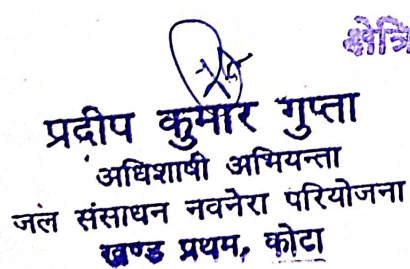 क्षेत्रि
प्रदीप कुमार गुप्ता
अधिशाषी अभियन्ता
जल संसाधन नवनेरा परियोजना
खण्ड प्रथम, कोटा